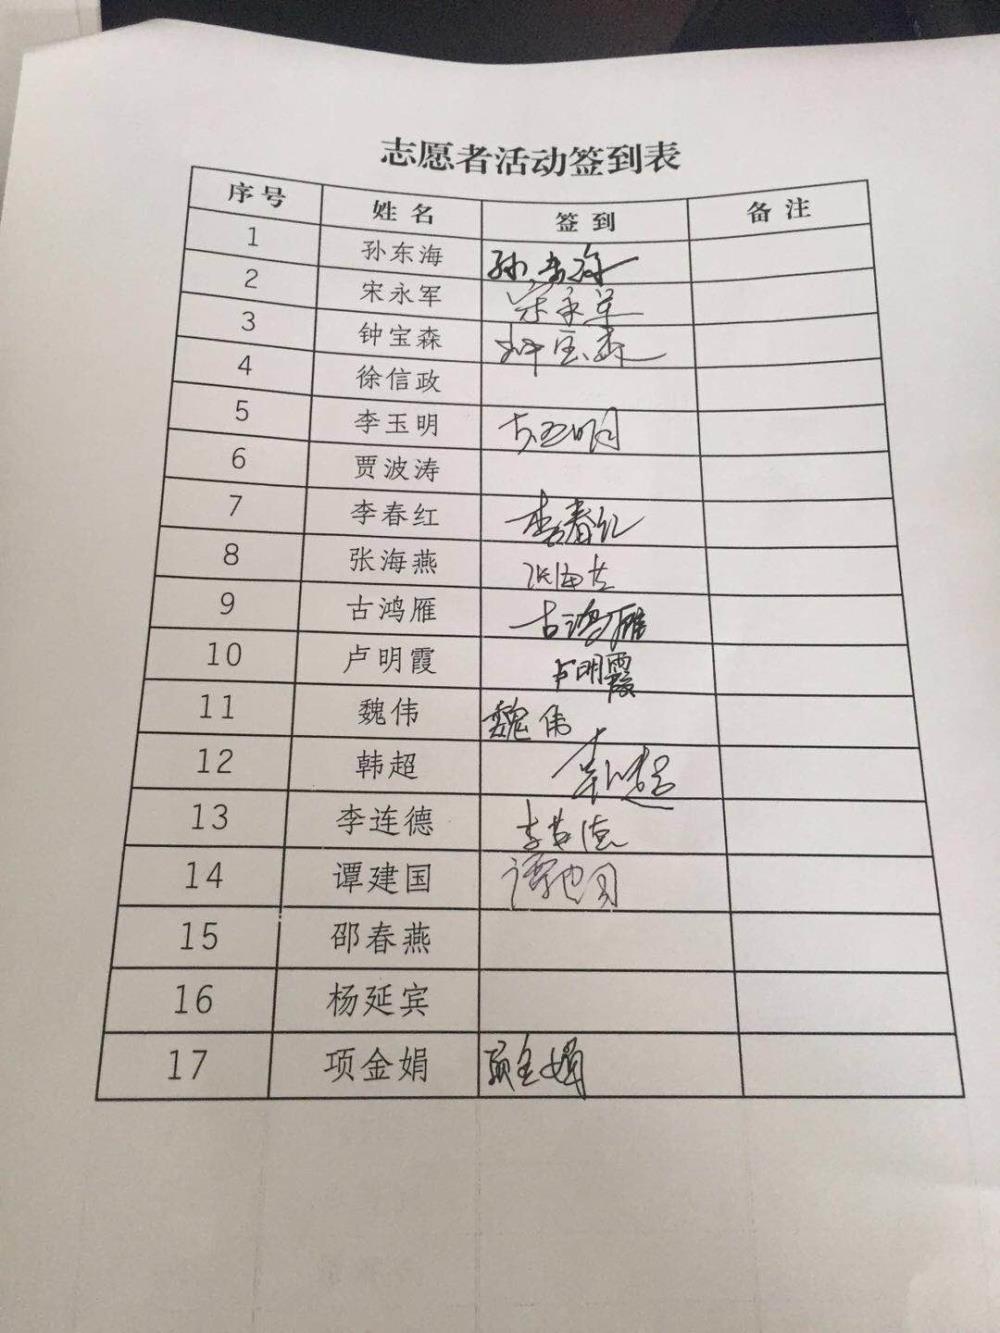 志愿者活动签到表
序号 姓名 签到 备注
1 孙东海 孙东海
2 宋永军 宋永军
3 钟宝森 钟宝森
4 徐信政
5 李玉明 李玉明
6 贾波涛
7 李春红 李春红
8 张海燕 张海燕
9 古鸿雁 古鸿雁
10 卢明霞 卢明霞
11 魏伟 魏伟
12 韩超 韩超
13 李连德 李连德
14 谭建国 谭建国
15 邵春燕
16 杨延宾
17 项金娟 项金娟